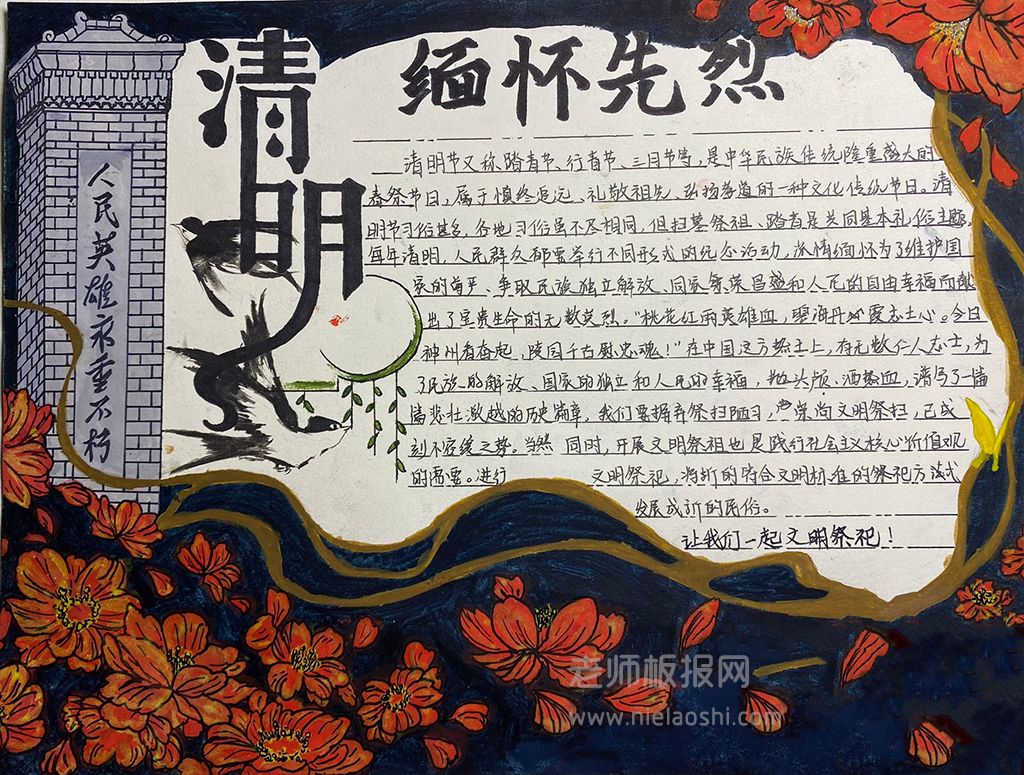 清明
缅怀先烈
人民英雄永垂不朽
清明节又称踏青节、行青节、三月节等，是中华民族传统隆重盛大的
春祭节日，属于慎终追远、礼敬祖先、弘扬孝道的一种文化传统节日。清
明节习俗甚多，各地习俗虽不尽相同，但扫墓祭祖、踏青是共同基本礼俗主题。
每年清明，人民群众都要举行不同形式的纪念活动，深情缅怀为了维护国
家的尊严、争取民族独立解放、国家繁荣昌盛和人民的自由幸福而献
出了宝贵生命的无数英烈。“桃花红雨英雄血，碧海丹霞志士心。今日
神州看奋起，陵园千古慰忠魂！”在中国这方热土上，有无数仁人志士，为
了民族的解放、国家的独立和人民的幸福，抛头颅、洒热血，谱写了一幅
幅悲壮激越的历史篇章，我们要摒弃祭扫陋习，崇尚文明祭扫，已成
刻不容缓之势。当然 同时，开展文明祭祖也是践行社会主义核心价值观
的需要。进行 文明祭祀，将新的符合文明标准的祭祀方式
发展成新的民俗。
让我们一起文明祭祀！
老师板报网
www.nielaoshi.com